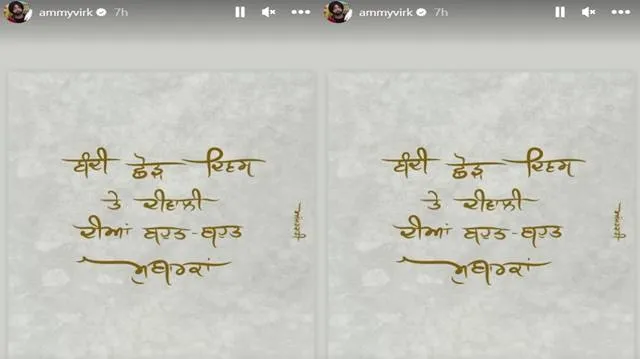 ammyvirk 7h
ਬੰਦੀ ਛੋੜ ਦਿਵਸ
ਤੇ ਦੀਵਾਲੀ
ਦੀਆਂ ਬਹੁਤ-ਬਹੁਤ
ਮੁਬਾਰਕਾਂ
ammyvirk 7h
ਬੰਦੀ ਛੋੜ ਦਿਵਸ
ਤੇ ਦੀਵਾਲੀ
ਦੀਆਂ ਬਹੁਤ-ਬਹੁਤ
ਮੁਬਾਰਕਾਂ